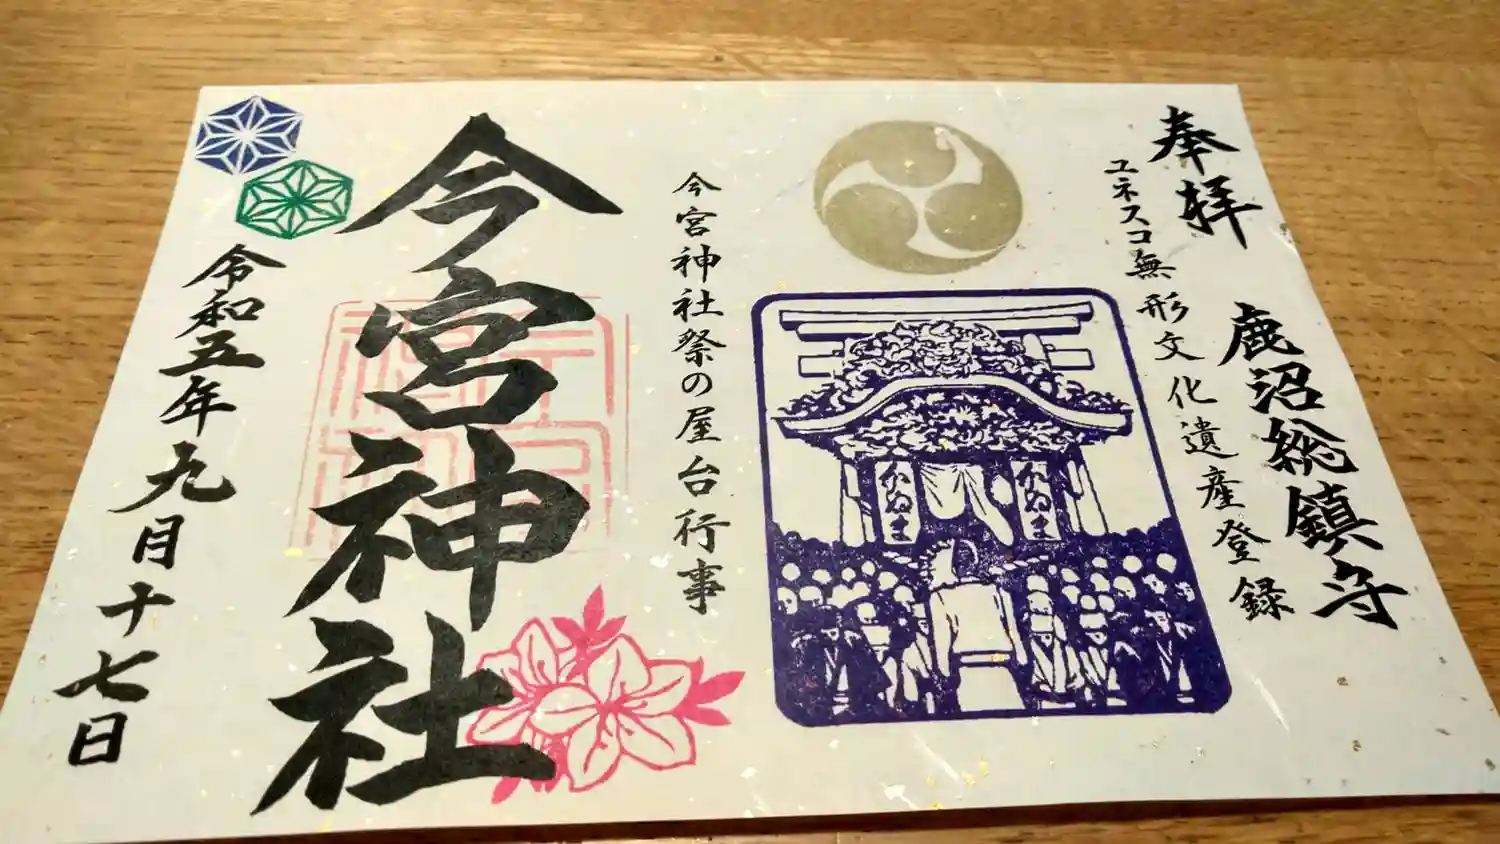 奉拝
鹿沼総鎮守
ユネスコ無形文化遺産登録
かぬま
かぬま
今宮神社祭の屋台行事
今宮神社
令和五年九月十七日